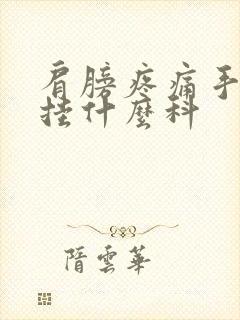 肩膀疼痛手
挂什麼科
隋雲華